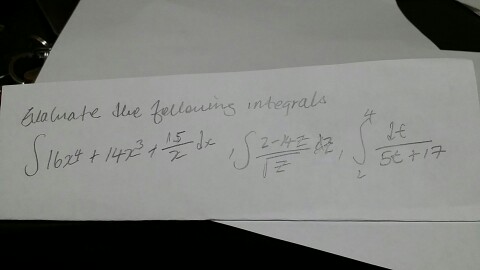 Evaluate the following integrals
∫ 16x⁴ + 14x³ + 15/2 dx , ∫ (2-14z)/√z dz , ∫₂⁴ dt/(5t+17)